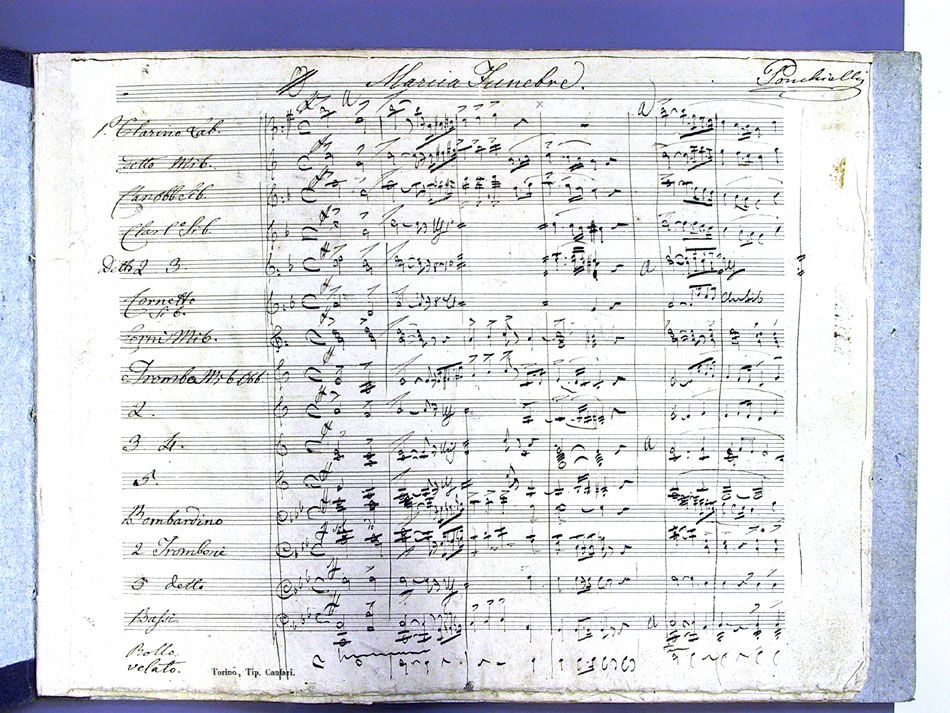 Marcia Funebre.
Ponchielli
1º Clarino Lab.
detto Mib.
Clar 1º Sib.
Detti 2 3.
Cornetto
Sib.
Corni Mib.
Tromba Mib
2.
3 4.
5
Bombardino
2 Tromboni
3 detto
Bassi
Rollo
velato.
Torino, Tip. Canfari.